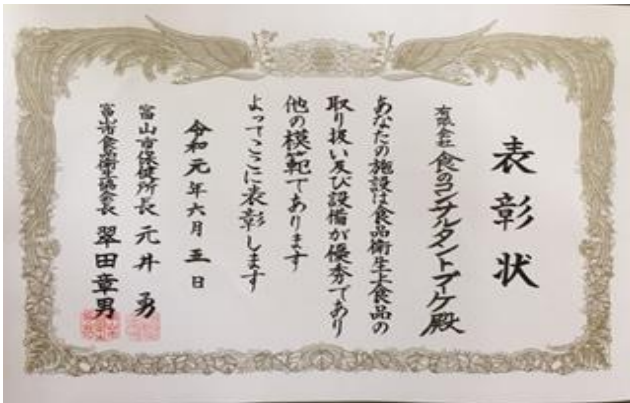 表彰状
有限会社 食のコンサルタントブイケ殿
あなたの施設は食品衛生上食品の
取り扱い及び設備が優秀であり
他の模範であります
よってここに表彰します
令和元年六月五日
富山市保健所長 元井 勇
富山市食品衛生協会長 翠田章男